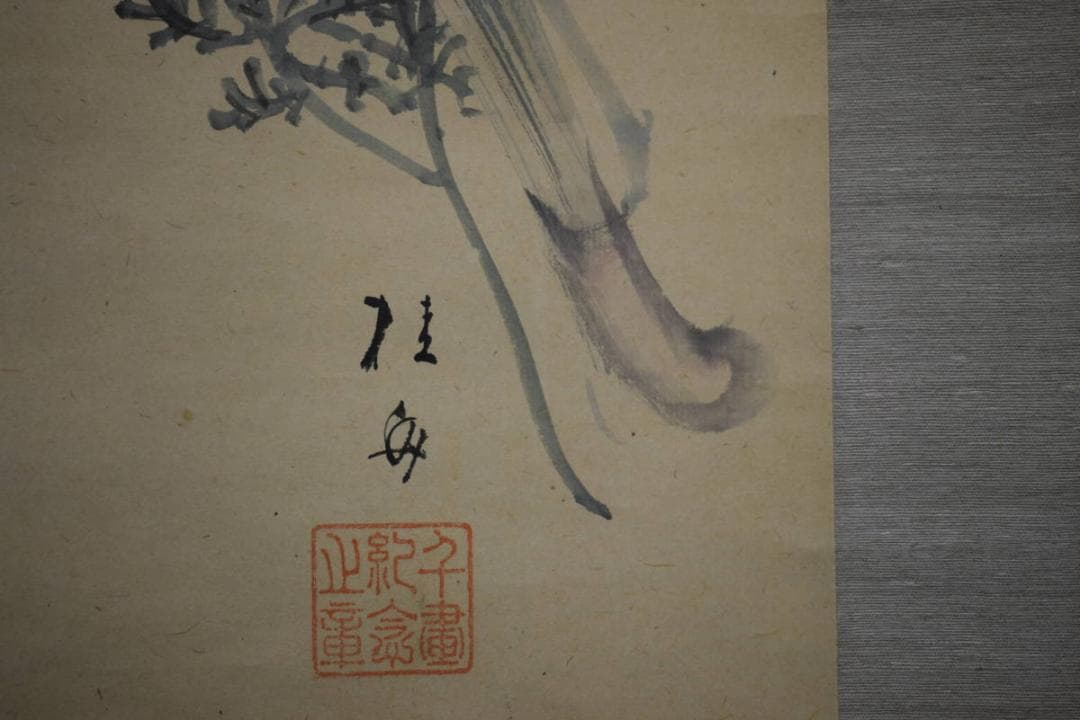 桂舟
千畫
紀念
之章